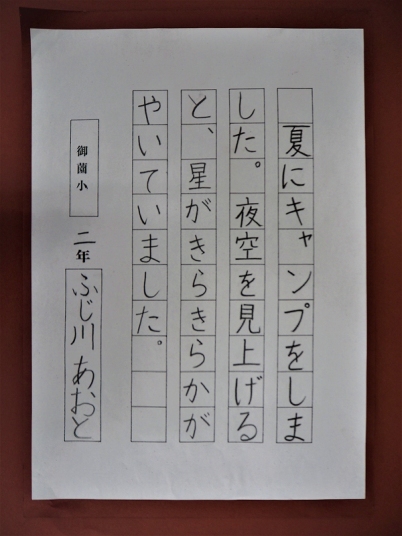 夏にキャンプをしま
した。夜空を見上げる
と、星がきらきらかが
やいていました。
御薗小 二年 ふじ川あおと